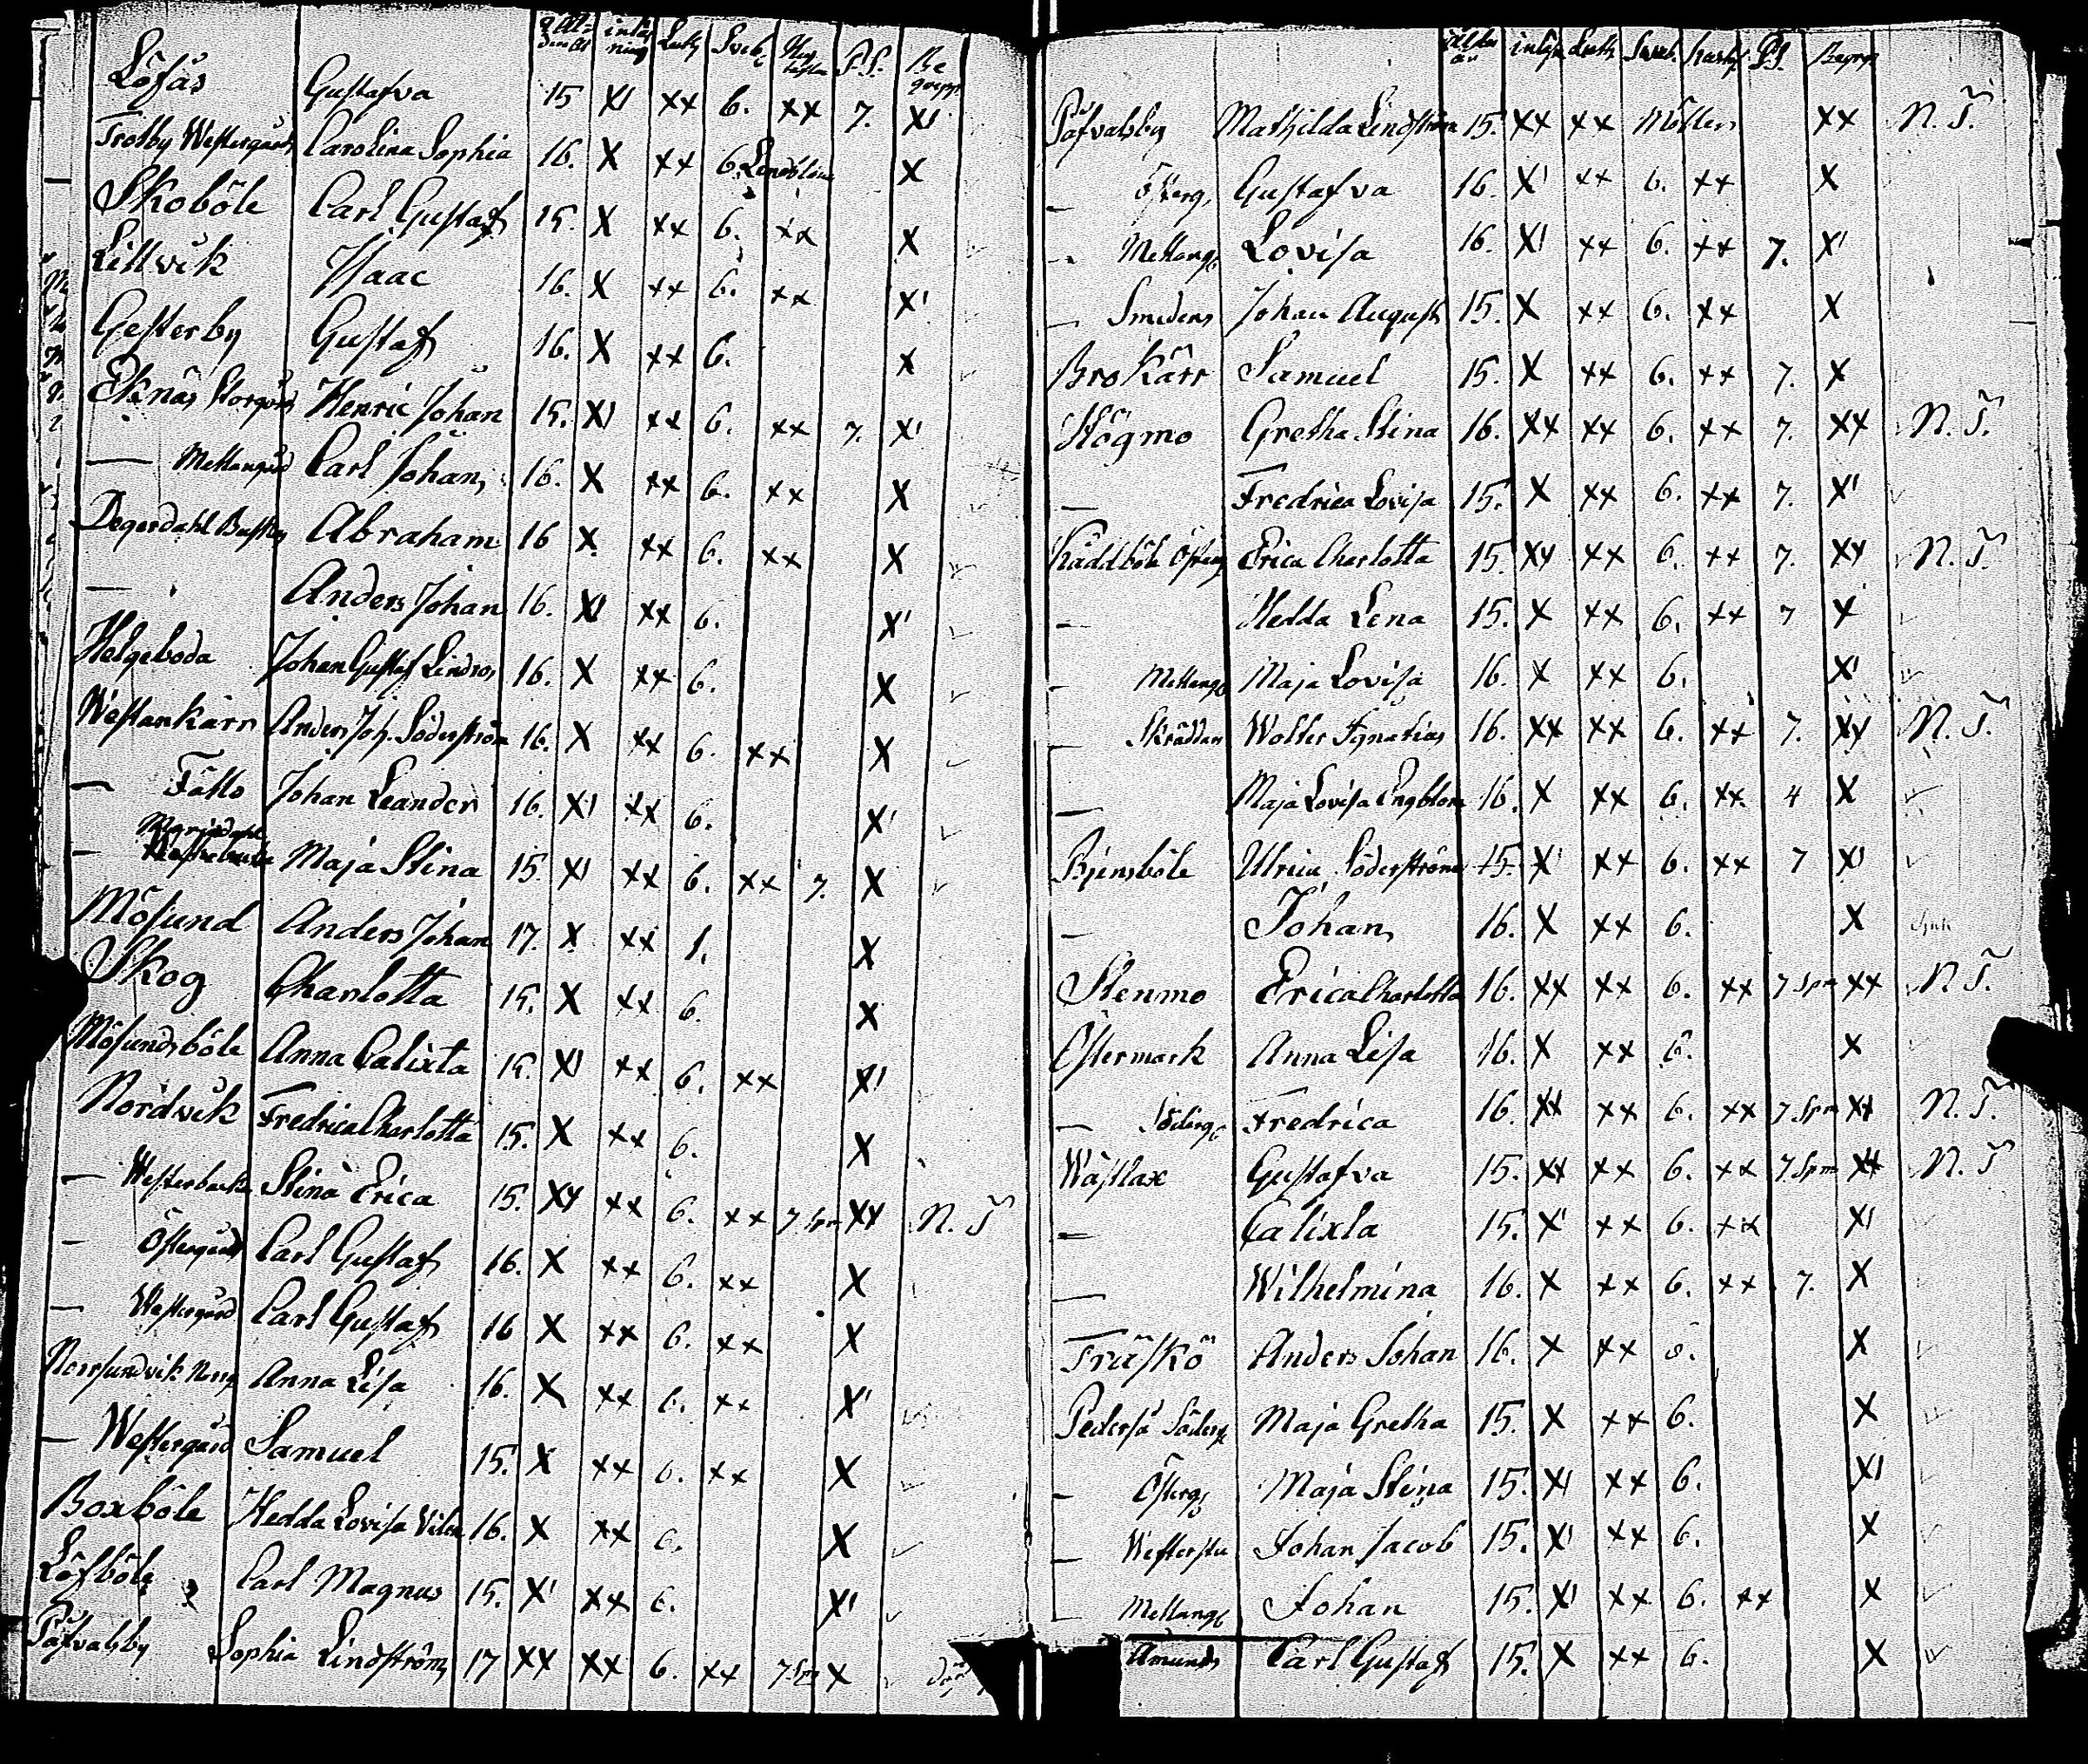 Luth. Sveb. P.S. Be grepp
Löfås Gustafva 15 X1 xx 6. xx 7. X1
Trotby Westergård Carolina Sophia 16. X xx 6. Lindblom X
Skoböle Carl Gustaf 15. X xx 6. xx X
Lillvik Isaac 16. X xx 6. xx X'
Gesterby Gustaf 16. X xx 6. X
Eknäs Storgård Henric Johan 15. X1 xx 6. xx 7. X1
— Mellangård Carl Johan 16. X xx 6. xx X
Degerdahl Abraham 16 X xx 6. xx X
— Anders Johan 16. X1 xx 6. X'
Helgeboda Johan Gustaf Lindros 16. X xx 6. X
Westankärr Anders Joh. Söderström 16. X xx 6. xx X
— Johan Leander 16. X1 xx 6. X'
— Maja Stina 15. X1 xx 6. xx 7. X
Mösund Anders Johan 17. X xx 1. X
Skog Charlotta 15. X xx 6. X
Mösundsböle Anna Calixta 15. X1 xx 6. xx X1
Nordvik Fredrica Charlotta 15. X xx 6. X
— Westerbacka Stina Erica 15. XX xx 6. xx 7. Spm XX N. T
— Östergård Carl Gustaf 16. X xx 6. xx X
— Westergård Carl Gustaf 16 X xx 6. xx X
Norrsundvik Norrg Anna Lisa 16. X xx 6. xx X'
— Westergård Samuel 15. X xx 6. xx X
Boxböle Hedda Lovisa 16. X xx 6. X
Löfböle Carl Magnus 15. X' xx 6. X'
Påfvalsby Sophia Lindström 17 XX XX 6. xx 7 Spm X
inläs Luth. Sveb. Hustaf. P.S. Begrep
Påfvalsby Mathilda Lindström 15. XX XX Möller XX N. T.
— Österg. Gustafva 16. X' xx 6. xx X
— Mellang. Lovisa 16. X1 xx 6. xx 7. X'
— Smedens Johan August 15. X xx 6. xx X
Brokärr Samuel 15. X xx 6. xx 7. X
Högmo Gretha Stina 16. XX xx 6. xx 7. XX N. T.
— Fredrica Lovisa 15. X xx 6. xx 7. X'
Käddböle Österg Erica Charlotta 15. XX xx 6. xx 7. XX N. T.
— Hedda Lena 15. X xx 6. xx 7 X
— Mellang. Maja Lovisa 16. X xx 6. X'
— Skräddars Wolter Ignatius 16. XX xx 6. xx 7. XX N. T.
— Maja Lovisa Engblom 16. X xx 6. xx 4 X
Bjensböle Ulrica Söderström 15. X' xx 6. xx 7 X1
— Johan 16. X xx 6. X
Stenmo Erica Charlotta 16. XX xx 6. xx 7 Spm XX N T.
Östermark Anna Lisa 16. X xx 6. X
— Söderg. Fredrica 16. XX xx 6. xx 7 Spm XX N. T.
Wästlax Gustafva 15. XX xx 6. xx 7. Spm XX N. T
— Calixta 15. X' xx 6. xx X1
— Wilhelmina 16. X xx 6. xx 7. X
Träskö Anders Johan 16. X xx 6. X
Pederså Söderg Maja Gretha 15. X xx 6. X
— Österg Maja Stina 15. X1 xx 6. X1
— Westerstu Johan Jacob 15. X' xx 6. X
— Mellang Johan 15. X1 xx 6. xx X
Amunds Carl Gustaf 15. X xx 6. X